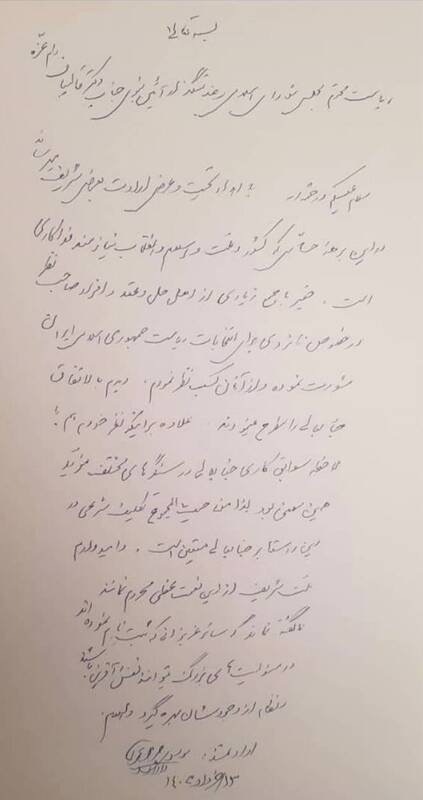 بسمه تعالی
ریاست محترم مجلس شورای اسلامی و خدمتگزار آئین نبوی جناب دکتر قالیباف دام عزّه
سلام علیکم و رحمة الله با اهداء تحیت و عرض ارادت بعرض شریف میرساند
در این برهه حساس که کشور و ملت و اسلام و انقلاب نیازمند فداکاری
است. حقیر با جمع زیادی از اهل حل و عقد و افراد صاحب نظر
در خصوص نامزدی برای انتخابات ریاست جمهوری اسلامی ایران
مشورت نموده و از آنان کسب نظر نمودم. دیدم بالاتفاق
جنابعالی را مطرح نمودند. علاوه بر اینکه نظر خودم هم با
ملاحظه سوابق کاری جنابعالی در سنگرهای مختلف مؤید
همین معنی بود لذا من حیث المجموع تکلیف شرعی در
این راستا بر جنابعالی متعین است. و امیدوارم
ملت شریف از این نعمت عظمی محروم نمانند
ناگفته نماند که سائر عزیزانی که ثبت نام نموده‌اند
در مسئولیت‌های بزرگ میتوانند نقش آفرین باشند
و نظام از وجودشان بهره گیرد
ارادتمند:
۱۳ خرداد ۱۴۰